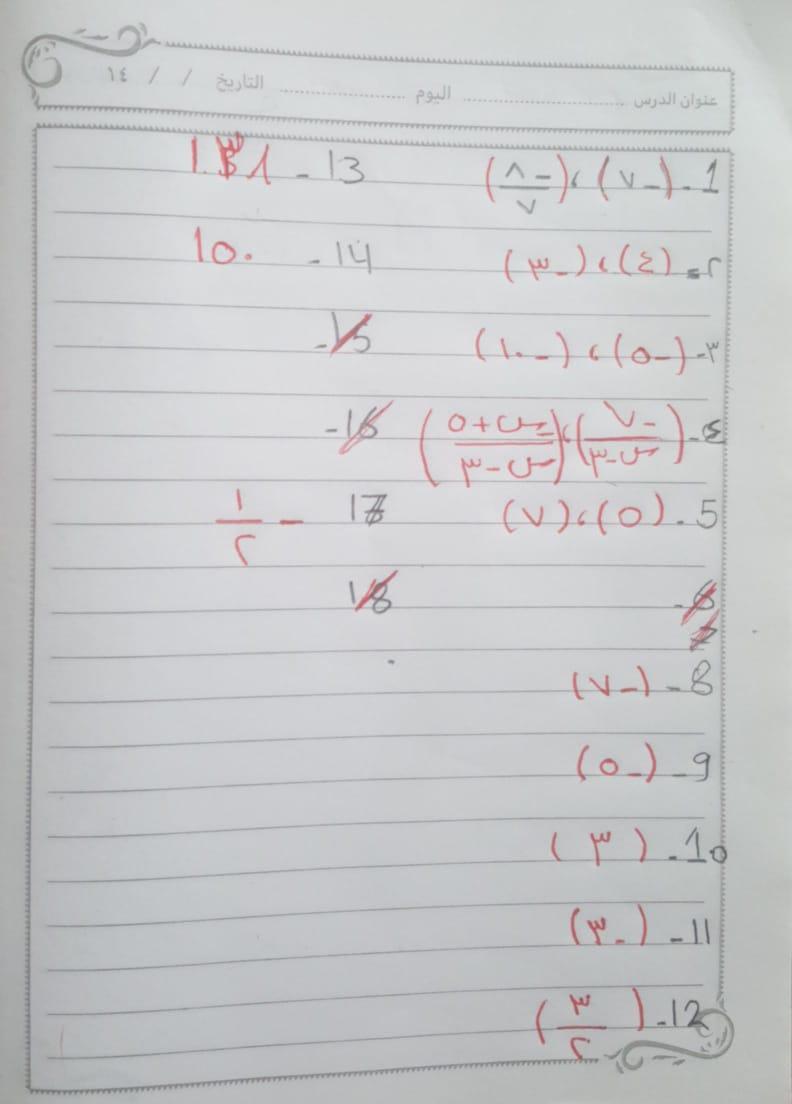 عنوان الدرس .................... اليوم .................... التاريخ / / ١٤
1- (-٧) ، (-٨/٧)
٢- (٤) ، (-٣)
٣- (-٥) ، (-١٠)
٤- (-٧/س-٣) ، (س+٥/س-٣)
5- (٥) ، (٧)
6-
7
8- (-٧)
9- (-٥)
10- (٣)
11- (-٣)
12- (٣/٢)
13-
14- ١٥٠
15-
16-
17 - ١/٢
18